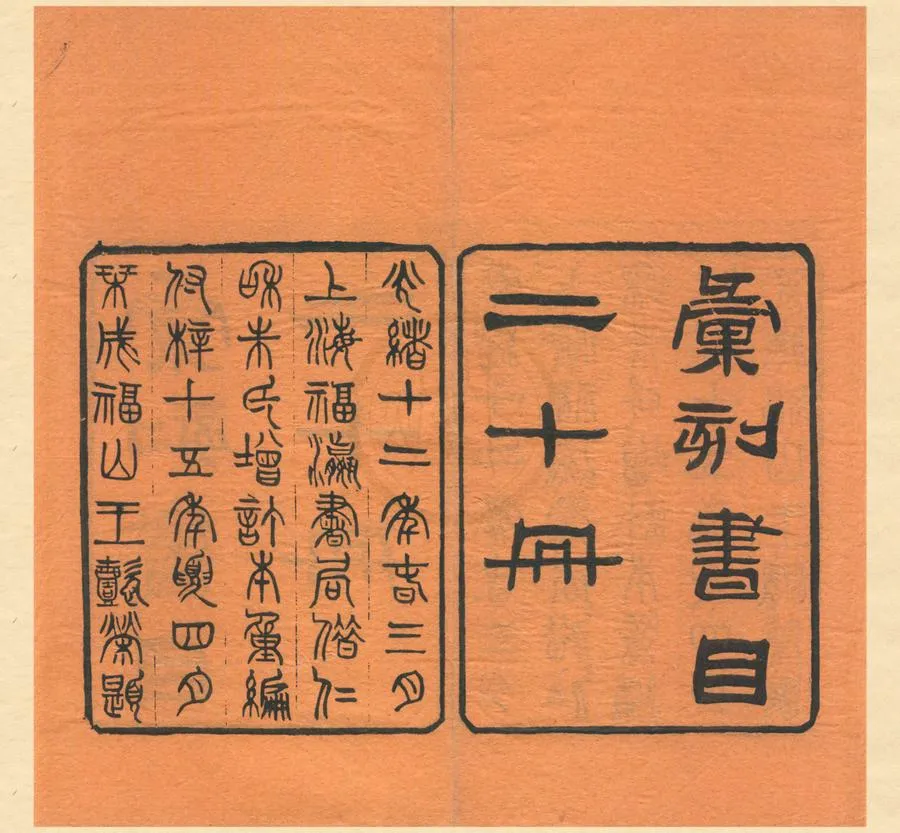 彙刻書目
二十冊
光緒十二年春三月
上海福瀛書局借仁
和朱氏增訂本重編
付梓十五年夏四月
栞成福山王懿榮題